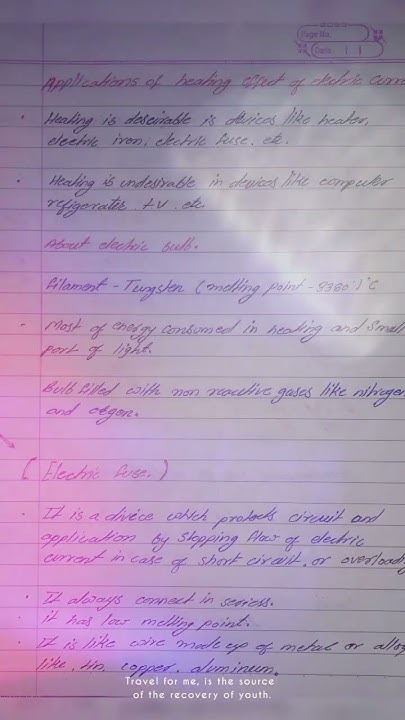 Page No.
Date
Applications of heating effect of elctric curre
Heating is desirable is devices like heater,
electric iron, electric fuse. etc.
Heating is undesirable in devices like computer
refigerater. tv. etc
About electric bulb.
filament - Tungsten (melting point - 3380°)°C
Most of energy consumed in heating and small
part of light.
Bulb filled with non reactive gases like nitrogen
and
(Electric fuse.)
It is a divice which protects circuit and
application by stopping flow of electric
current in case of short circuit. or overloadi
It always connect in seriess.
it has low melting point.
It is like wire made up of metal or alloy
like, tin, copper. aluminum.
Travel for me, is the source
of the recovery of youth.